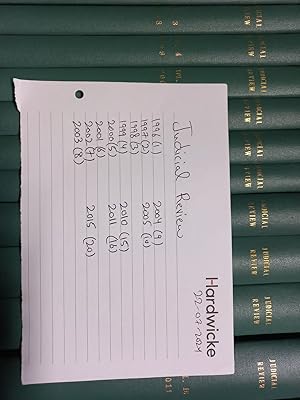 Hardwicke
22-07-2021
Judicial Review
1996 (1) 2004 (9)
1997 (2) 2005 (10)
1998 (3)
1999 (4) 2010 (15)
2000 (5) 2011 (16)
2001 (6)
2002 (7) 2015 (20)
2003 (8)
JUDICIAL
REVIEW
JUDICIAL
REVIEW
JUDICIAL
REVIEW
JUDICIAL
REVIEW
JUDICIAL
REVIEW
JUDICIAL
REVIEW
JUDICIAL
REVIEW
JUDICIAL
REVIEW